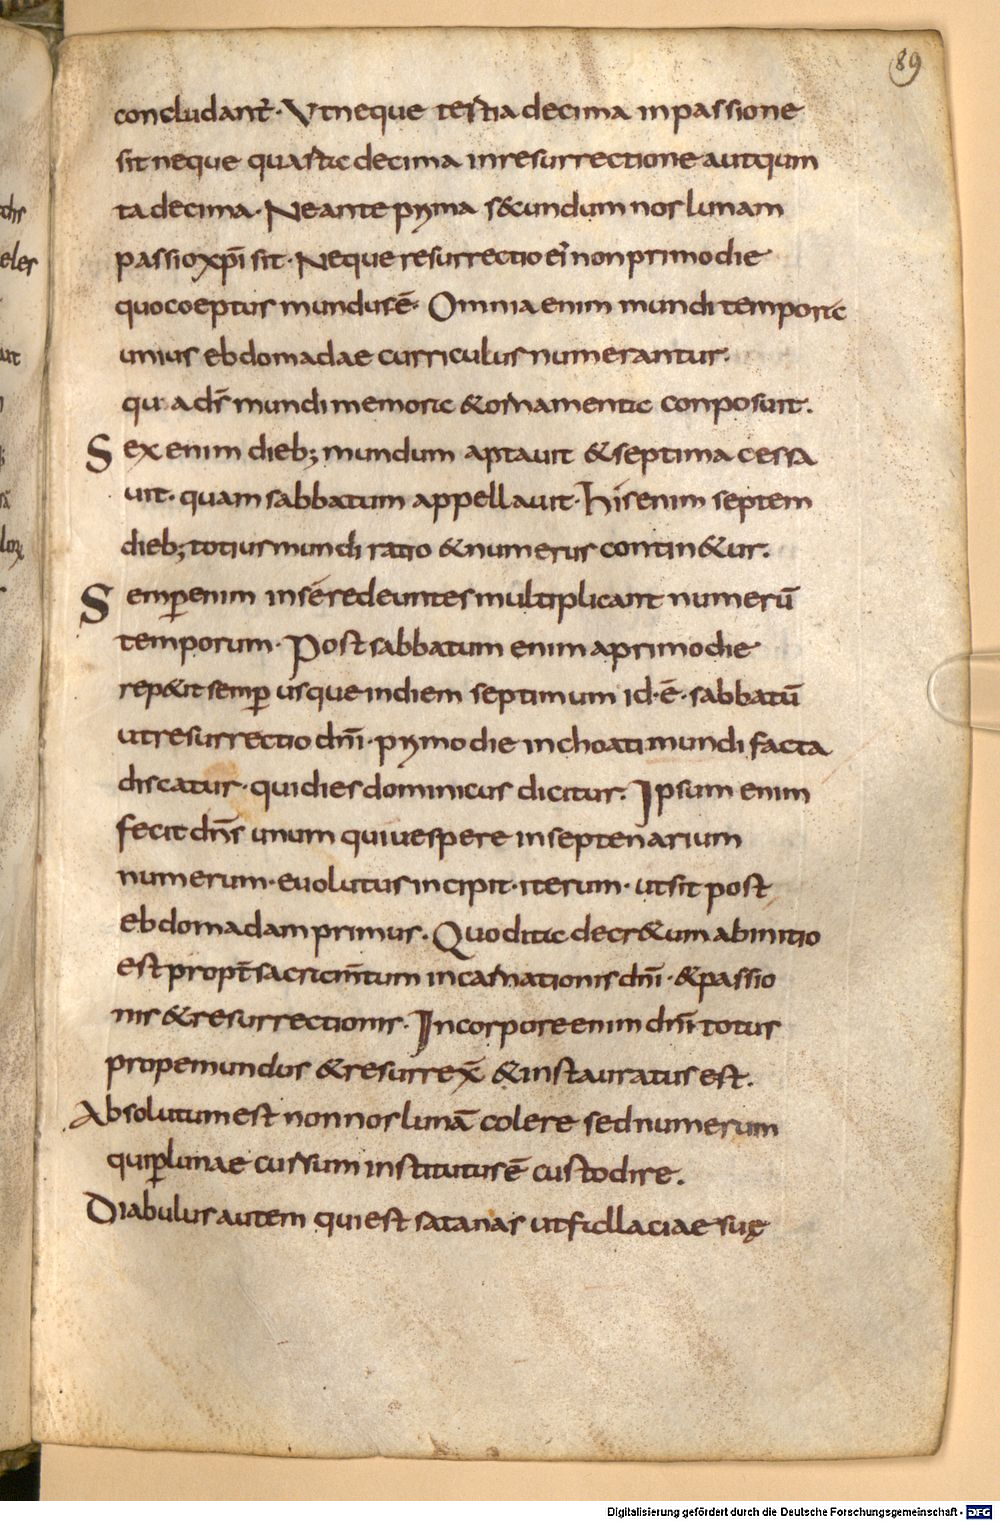 89
concludant̄· Ut neque tertia decima in passione
sit neque quarta decima in resurrectione aut quin
ta decima· Ne ante prima secundum nos lunam
passio xp̄i sit· Neque resurrectio eī non primo die
quo coeptus mundus ē· Omnia enim mundi tempora
unius ebdomadae curriculus numerantur·
qua d̄s mundi memoria & ornamenta conposuit.
Sex enim dieb; mundum aptauit & septima cessa
uit· quam sabbatum appellauit· His enim septem
dieb; totius mundi ratio & numerus contin&ur.
Semp̄ enim in sē redeuntes multiplicant numerū
temporum· Post sabbatum enim a primo die
rep&it semp̄ usque in diem septimum id·ē· sabbatū
ut resurrectio dn̄i· prymo die inchoati mundi facta
discatur· qui dies dominicus dicitur. Ipsum enim
fecit dn̄s unum qui uespere in septenarium
numerum· euolutus incipit· iterum· ut sit post
ebdomadam primus· Quod ita decr&um ab initio
est propt̄ sacram̄tum incarnationis dn̄i· & passio
nis & resurrectionis· In corpore enim dn̄i totus
prope mundus & resurrex̄ & instauratus est.
Absolutum est non nos lunā colere sed numerum
qui p̄ lunae cursum institutus ē custodire.
Diabulus autem qui est satanas ut fallaciae suę
Digitalisierung gefördert durch die Deutsche Forschungsgemeinschaft - DFG